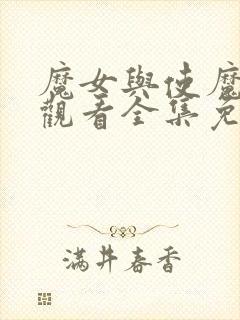 魔女與使魔
觀看全集免
滿井春香